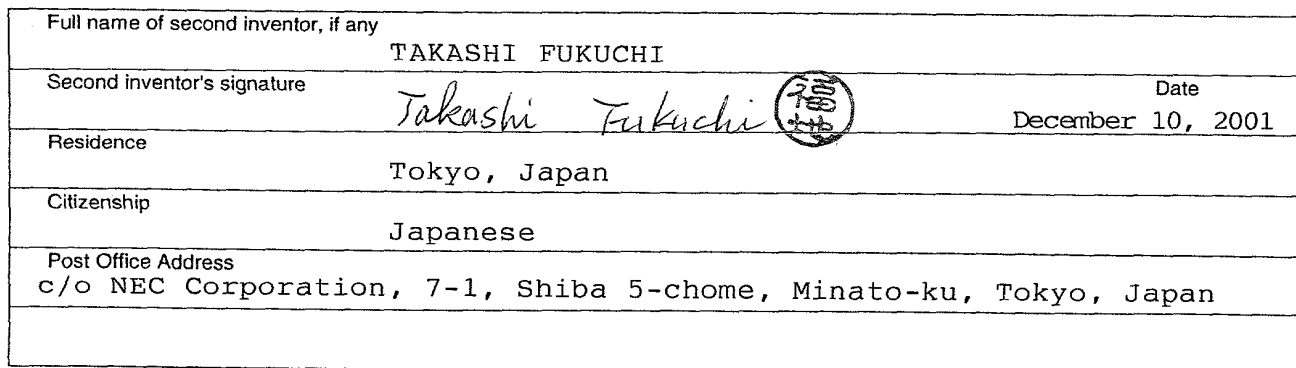 Full name of second inventor, if any
TAKASHI FUKUCHI
Second inventor's signature
Date
Takashi Fukuchi 福地
December 10, 2001
Residence
Tokyo, Japan
Citizenship
Japanese
Post Office Address
c/o NEC Corporation, 7-1, Shiba 5-chome, Minato-ku, Tokyo, Japan